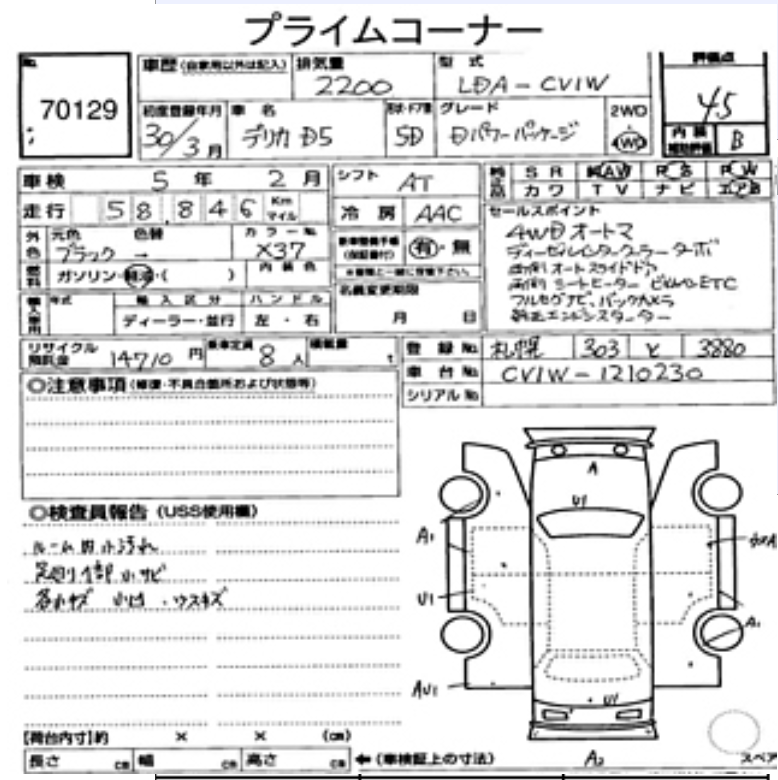 プライムコーナー
No. 70129
車歴 (自家用以外は記入) 排気量 2200 型式 LDA-CV1W 評価点 4.5
初度登録年月 30/3月 車名 デリカ D5 形状・ドア数 5D グレード Dパワーパッケージ 2WD 4WD 内装補助評価 B
車検 5年 2月 シフト AT 純正品 SR AW PS PW
カワ TV ナビ エアB
走行 58,846 Km マイル 冷房 AAC
セールスポイント
4WD オートマ
ディーゼルインタークーラーターボ
両側オートスライドドア
両側シートヒーター ビルトインETC
フルセグナビ、バックカメラ
純正エンジンスターター
外色 元色 ブラック 色替 → カラーNo. X37
有・無
燃料 ガソリン・軽油・( ) 内装色
名義変更期限 月 日
輸入車用 年式 輸入区分 ハンドル
ディーラー・並行 左・右
リサイクル預託金 14710 円 乗車定員 8 人 積載量 t
登録No. 札幌 303 と 3880
車台No. CV1W-1210230
シリアルNo.
◎注意事項 (修復・不具合箇所および状態等)
◎検査員報告 (USS使用欄)
ルーム内小汚れ
足回り1部小サビ
各小キズ 小凹・ウスキズ
A
U1
A1
U1
A1
AU1
U1
A2
スペア
【荷台内寸】約 × × (cm)
長さ cm 幅 cm 高さ cm ←(車検証上の寸法)